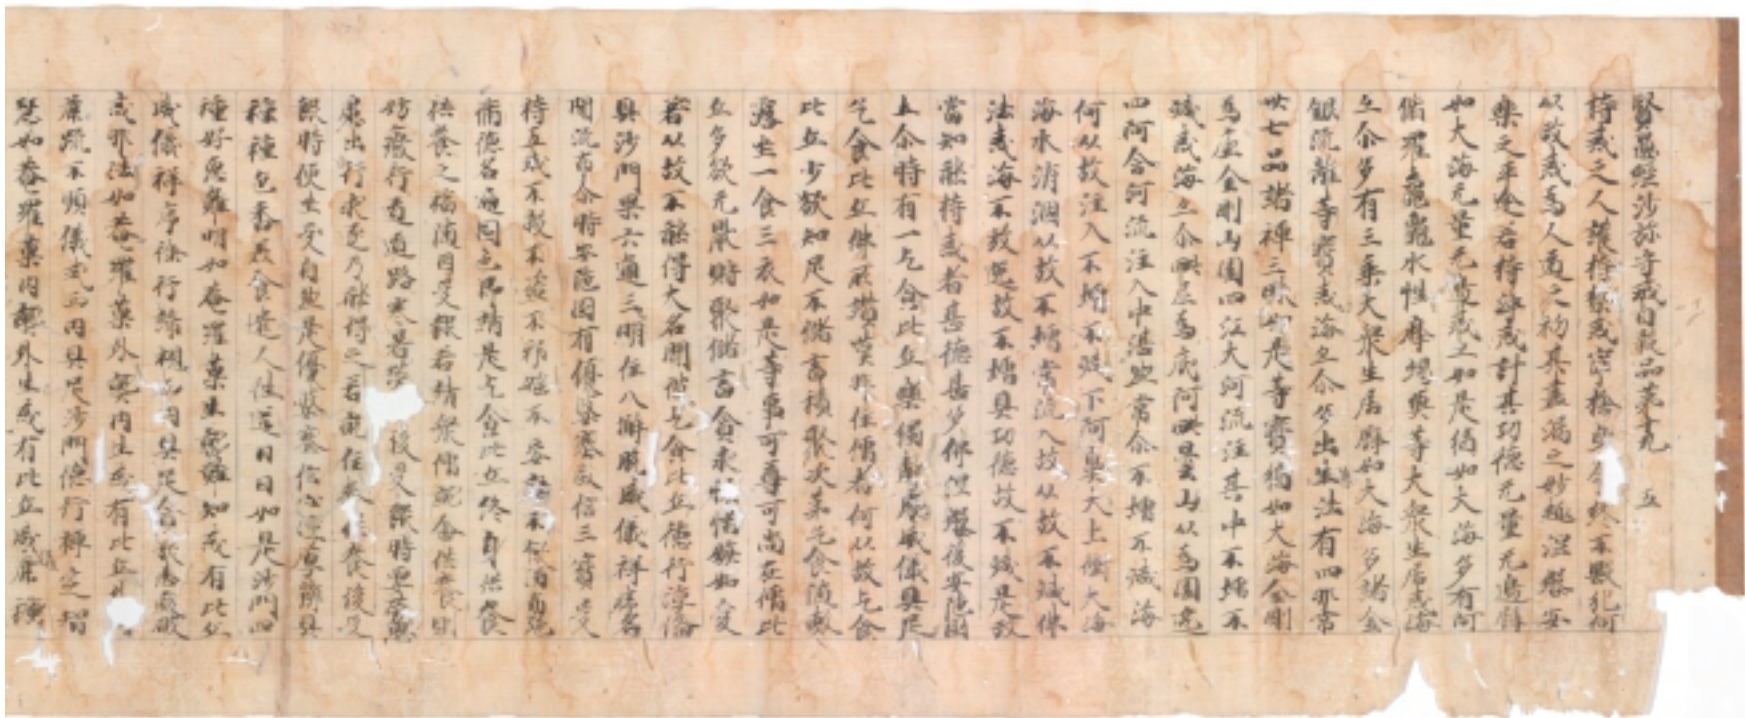 賢愚經沙弥守戒自煞品第十九 五
持戒之人護持禁戒寧捨身命終不毀犯何
以故戒為人道之初基盡漏之妙趣涅槃安
樂之平途若持淨戒計其功德无量无邊譬
如大海无量无邊戒亦如是猶如大海多有阿
脩羅黿龜水性摩竭魚等大衆生居戒海
亦尒多有三乘大衆生居譬如大海多諸金
銀流離等寶戒海亦尒多出生法有四非常
卅七品諸禪三昧如是等寶猶如大海金剛
為底金剛山圍四江大河流注其中不增不
減戒海亦尒毗尼為底阿毗曇山以為圍遶
四阿含河流注入中湛然常尒不增不減海
何以故注入不增不減下阿鼻火上衝大海
海水消涸以故不增常流入故以故不減佛
法戒海不放逸故不增具功德故不減是故
當知能持戒者甚德甚多佛涅槃後安陀國
土尒時有一乞食比丘樂獨靜處威儀具足
乞食比丘佛所讚嘆非住僧者何以故乞食
比丘少欲知足不儲畜積聚次第乞食隨敷
露坐一食三衣如是等事可尊可尚在僧比
丘多欲无猒貯聚儲畜貪求悋惜嫉妬愛
著以故不能得大名聞彼乞食比丘德行淳備
具沙門果六通三明住八解脫威儀祥序名
聞流布尒時安陀國有優婆塞敬信三寶受
持五戒不煞不盜不邪婬不妄語不飲酒布施
脩德名遍國邑請是乞食比丘終身供養
供養之福隨因受報若請衆僧就舍供養則
妨癈行道道路寒暑勞後受報時要勞慮
思出行求乃能得之若就往供養後受
報時便坐受自然是優婆塞信心淳厚辦具
種種色香美食遣人往送日日如是沙門四
種好惡難明如菴羅菓生熟難知或有比丘
威儀祥序徐行諦視而內具足貪欲恚癡破
戒非法如菴羅菓外熟內生或有比丘外
麁疏不順儀式而內具足沙門德行禪定智
慧如菴羅菓內熟外生或有比丘威儀麁獷